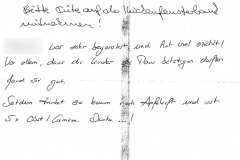 Bitte Tüte auf das Kinderfensterband
mitnehmen!
war sehr begeistert und hat viel erzählt!
Vor allem, dass die Kinder die betätigen durften
fand er gut.
Seitdem trinkt er kaum noch Apfelsaft und isst
5x Obst / Danke ...!